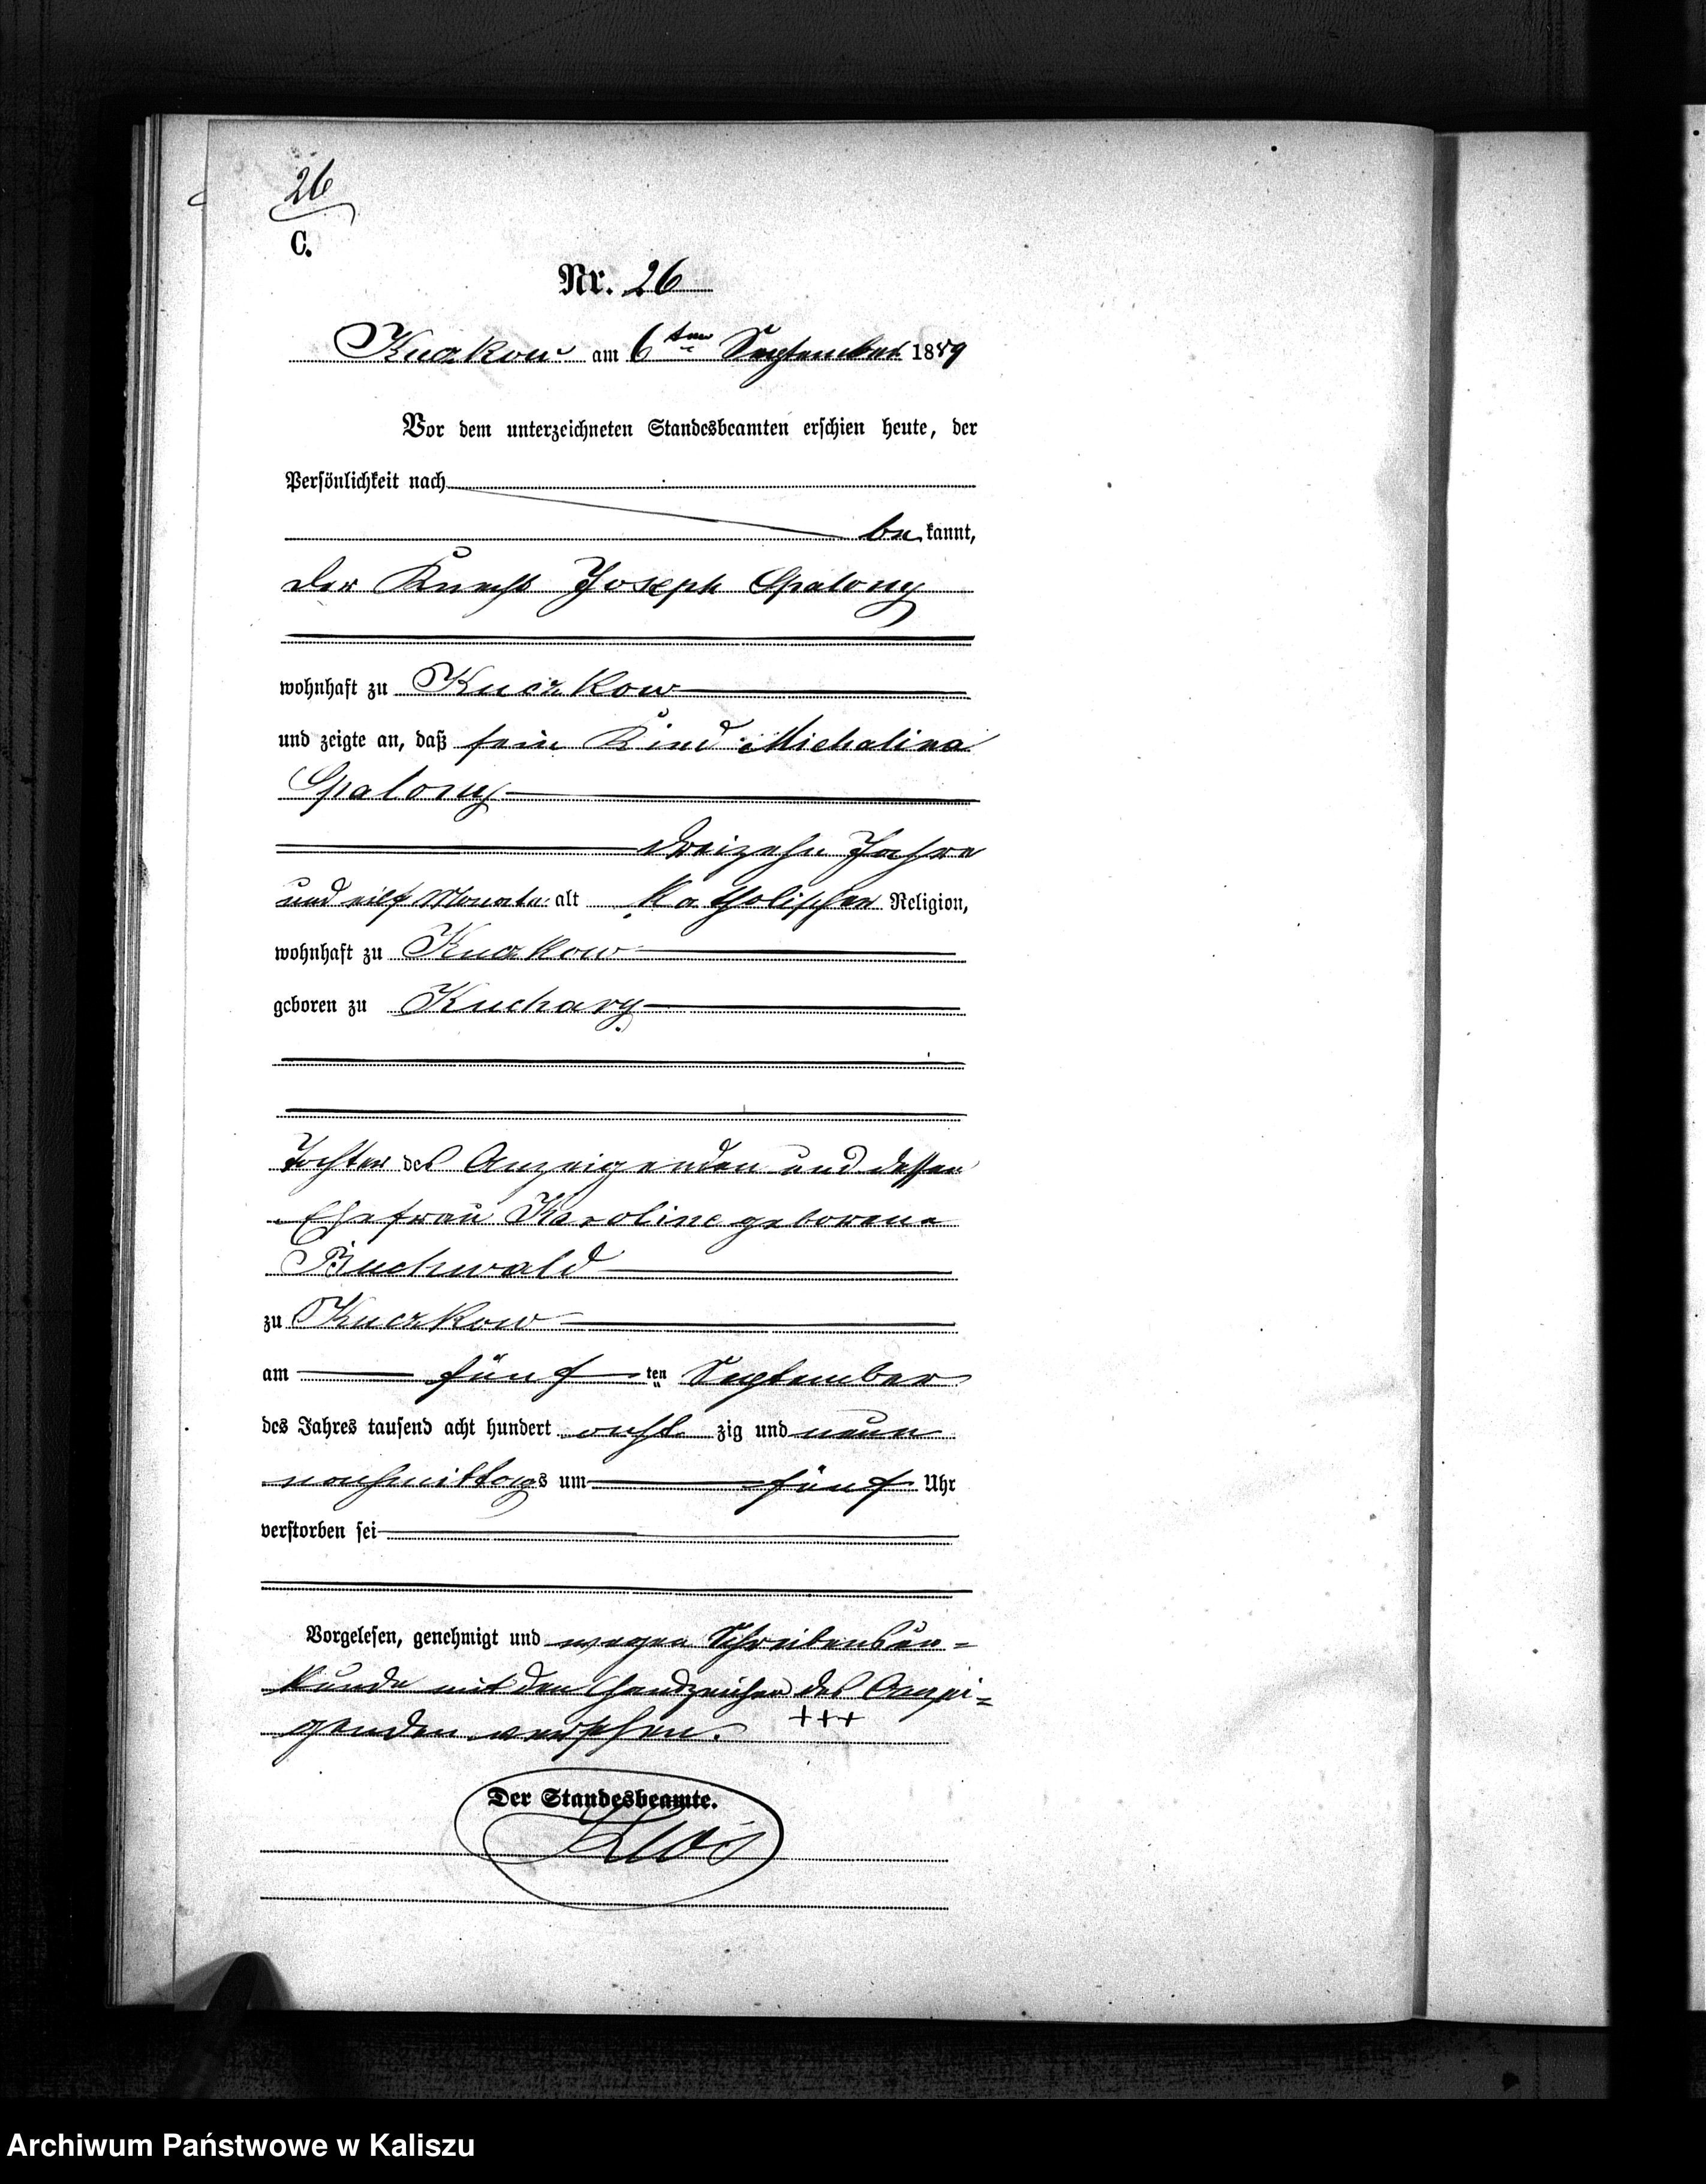 26
C.
Nr. 26
Kuczkow am 6ten September 1889
Vor dem unterzeichneten Standesbeamten erschien heute, der
Persönlichkeit nach
be kannt,
der Knecht Joseph Spalony
wohnhaft zu Kuczkow
und zeigte an, daß sein Kind Michalina
Spalony
dreizehn Jahre
und eilf Monate alt katholischer Religion,
wohnhaft zu Kuczkow
geboren zu Kuchary
Tochter des Anzeigenden und dessen
Ehefrau Karoline geborene
Buchwald
zu Kuczkow
am fünf ten September
des Jahres tausend acht hundert acht zig und neun
nachmittags um fünf Uhr
verstorben sei
Vorgelesen, genehmigt und wegen Schreibensun=
kunde mit den Handzeichen des Anzei=
genden versehen. +++
Der Standesbeamte.
Klos
Archiwum Państwowe w Kaliszu